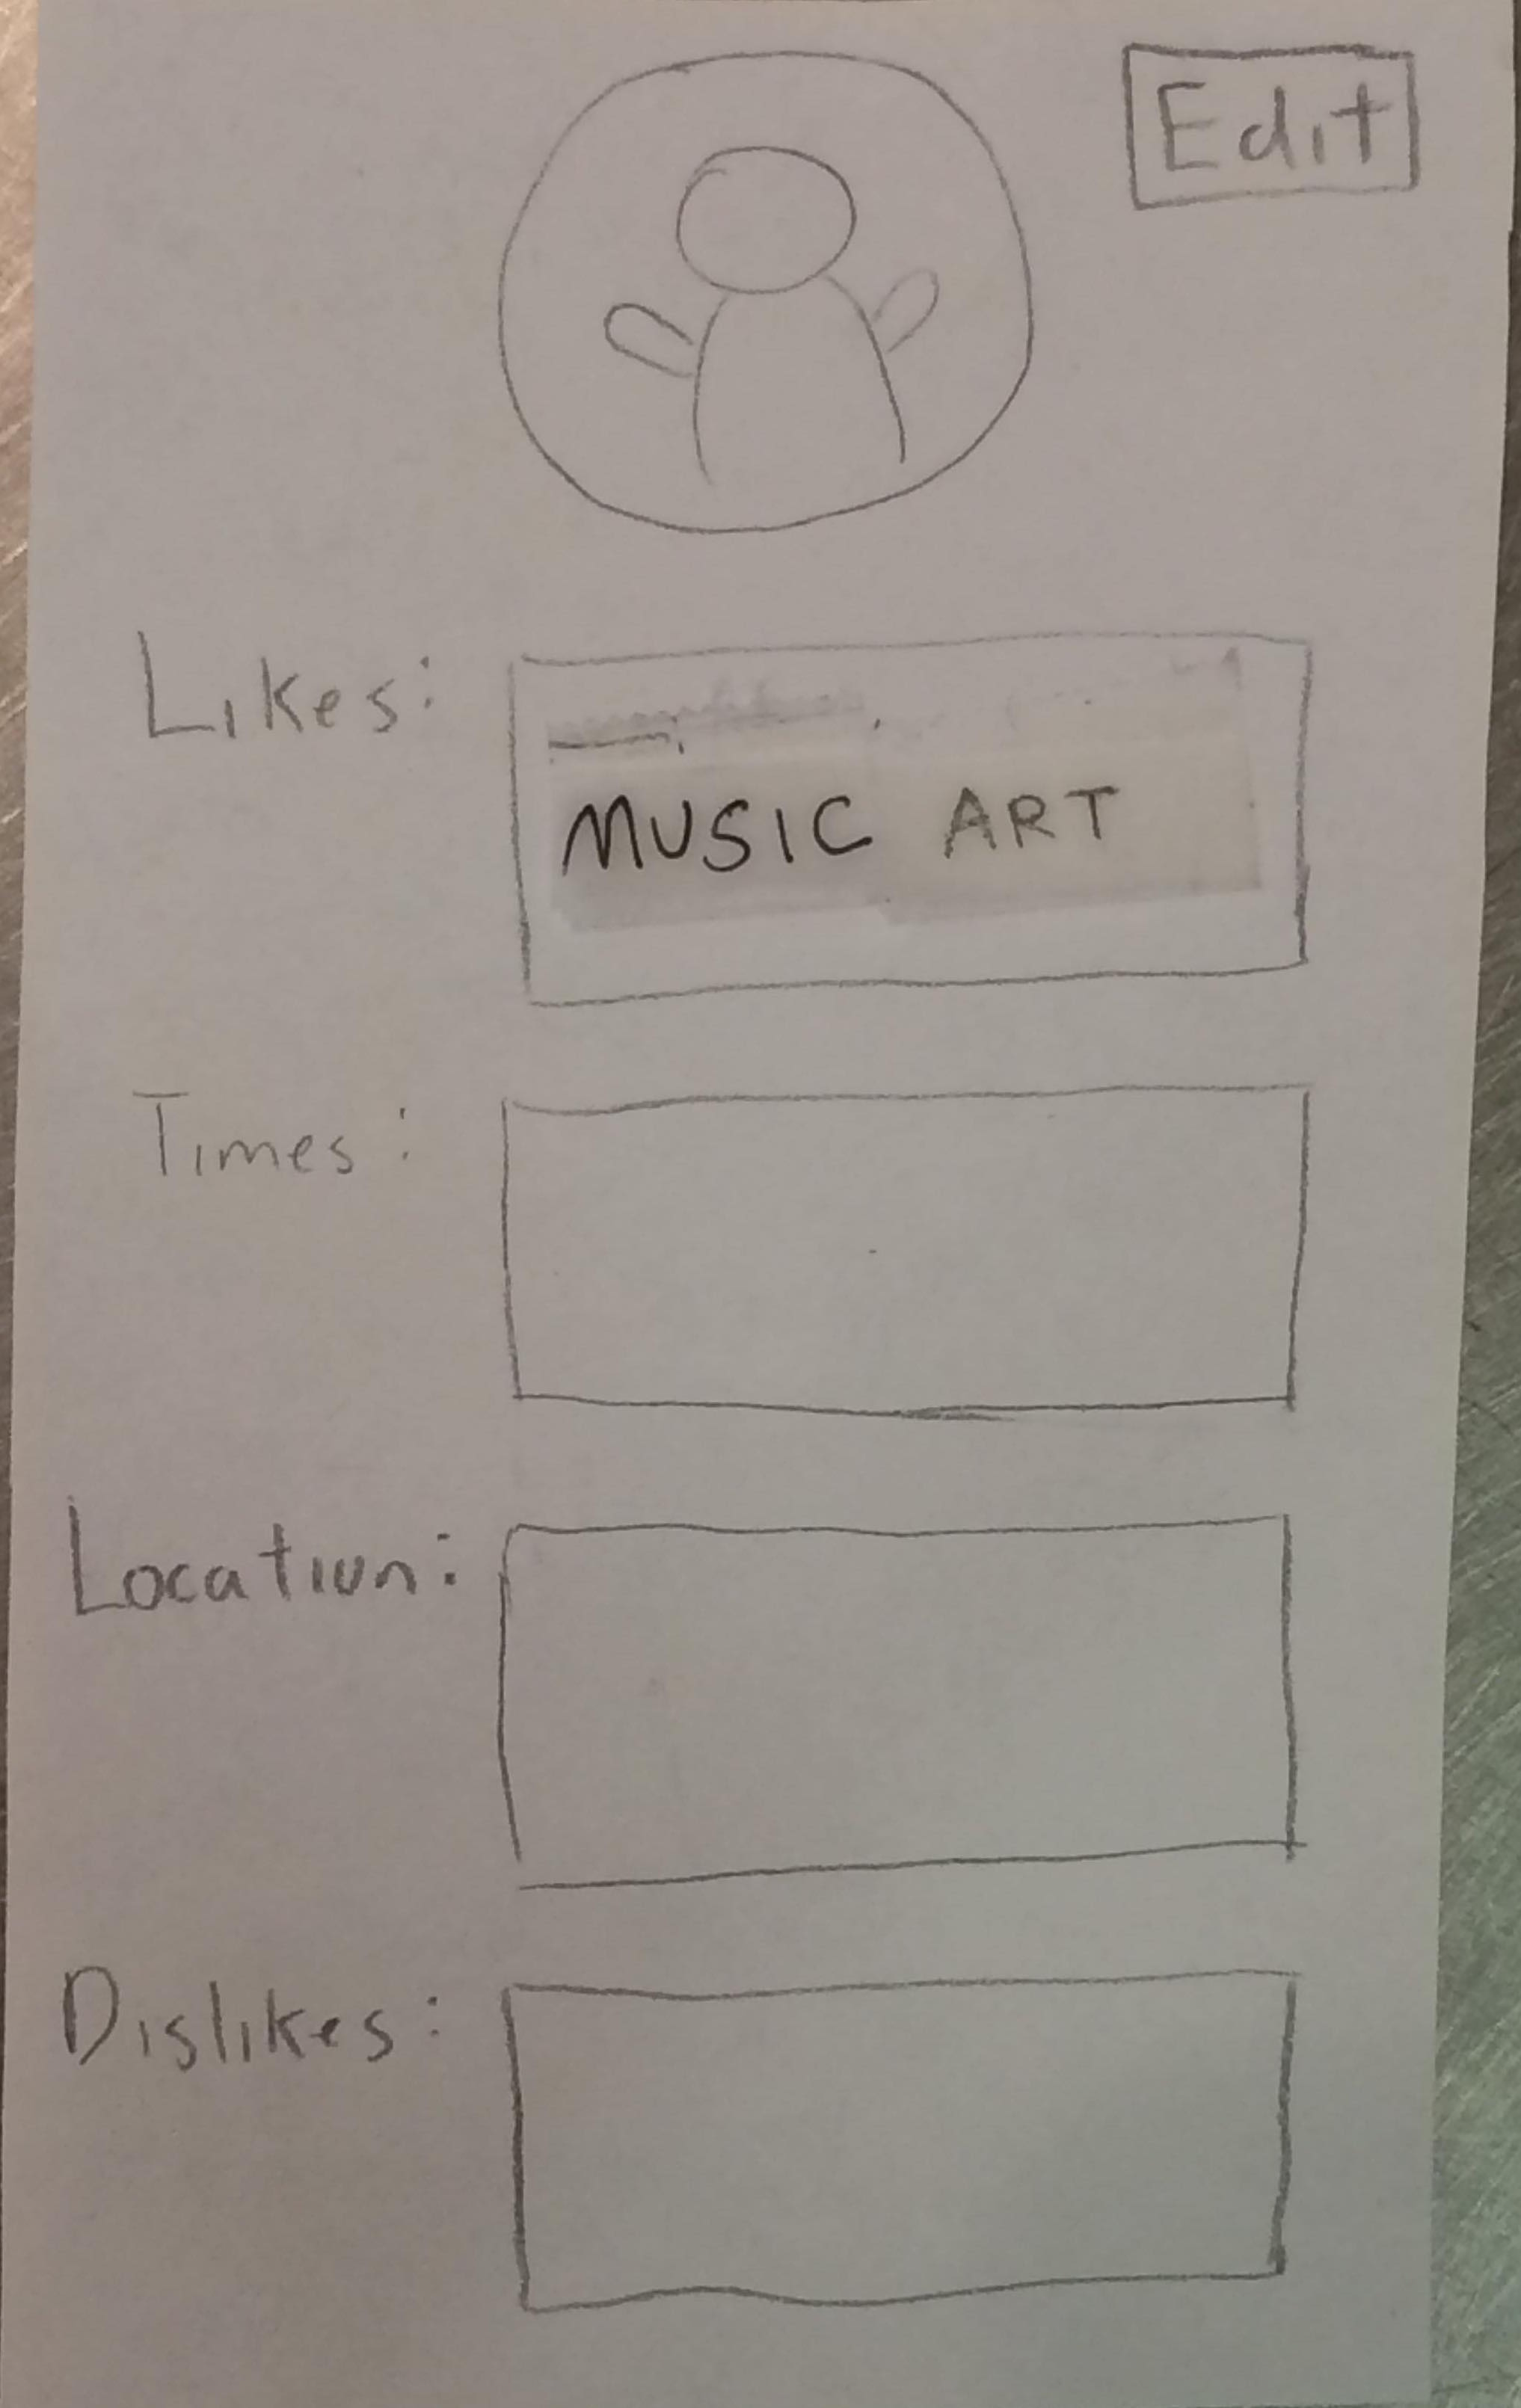 Edit
Likes:
MUSIC ART
Times:
Location:
Dislikes: